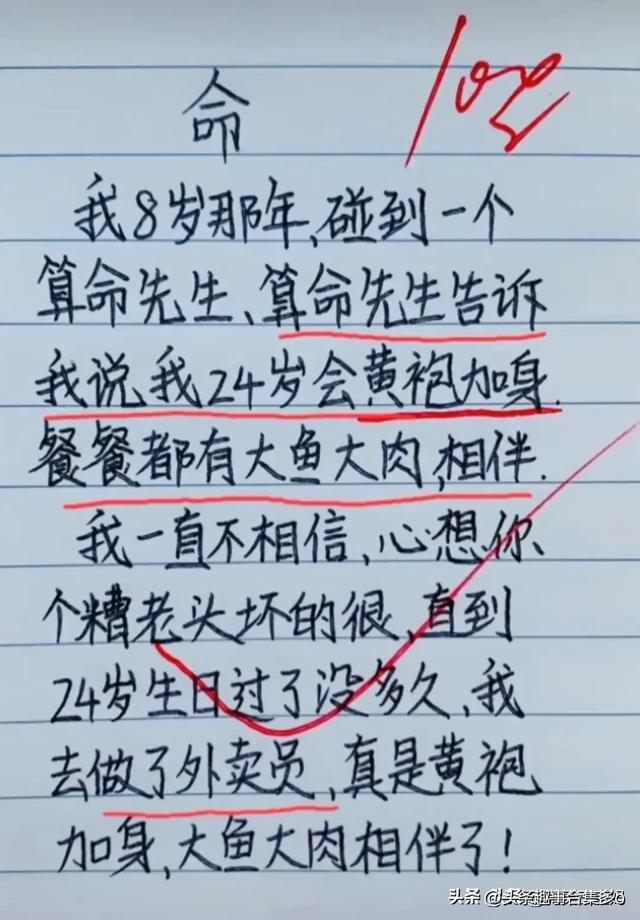 100
命
我8岁那年,碰到一个
算命先生、算命先生告诉
我说我24岁会黄袍加身.
餐餐都有大鱼大肉,相伴.
我一直不相信,心想你、
个糟老头坏的很,直到
24岁生日过了没多久,我
去做了外卖员,真是黄袍
加身,大鱼大肉相伴了!